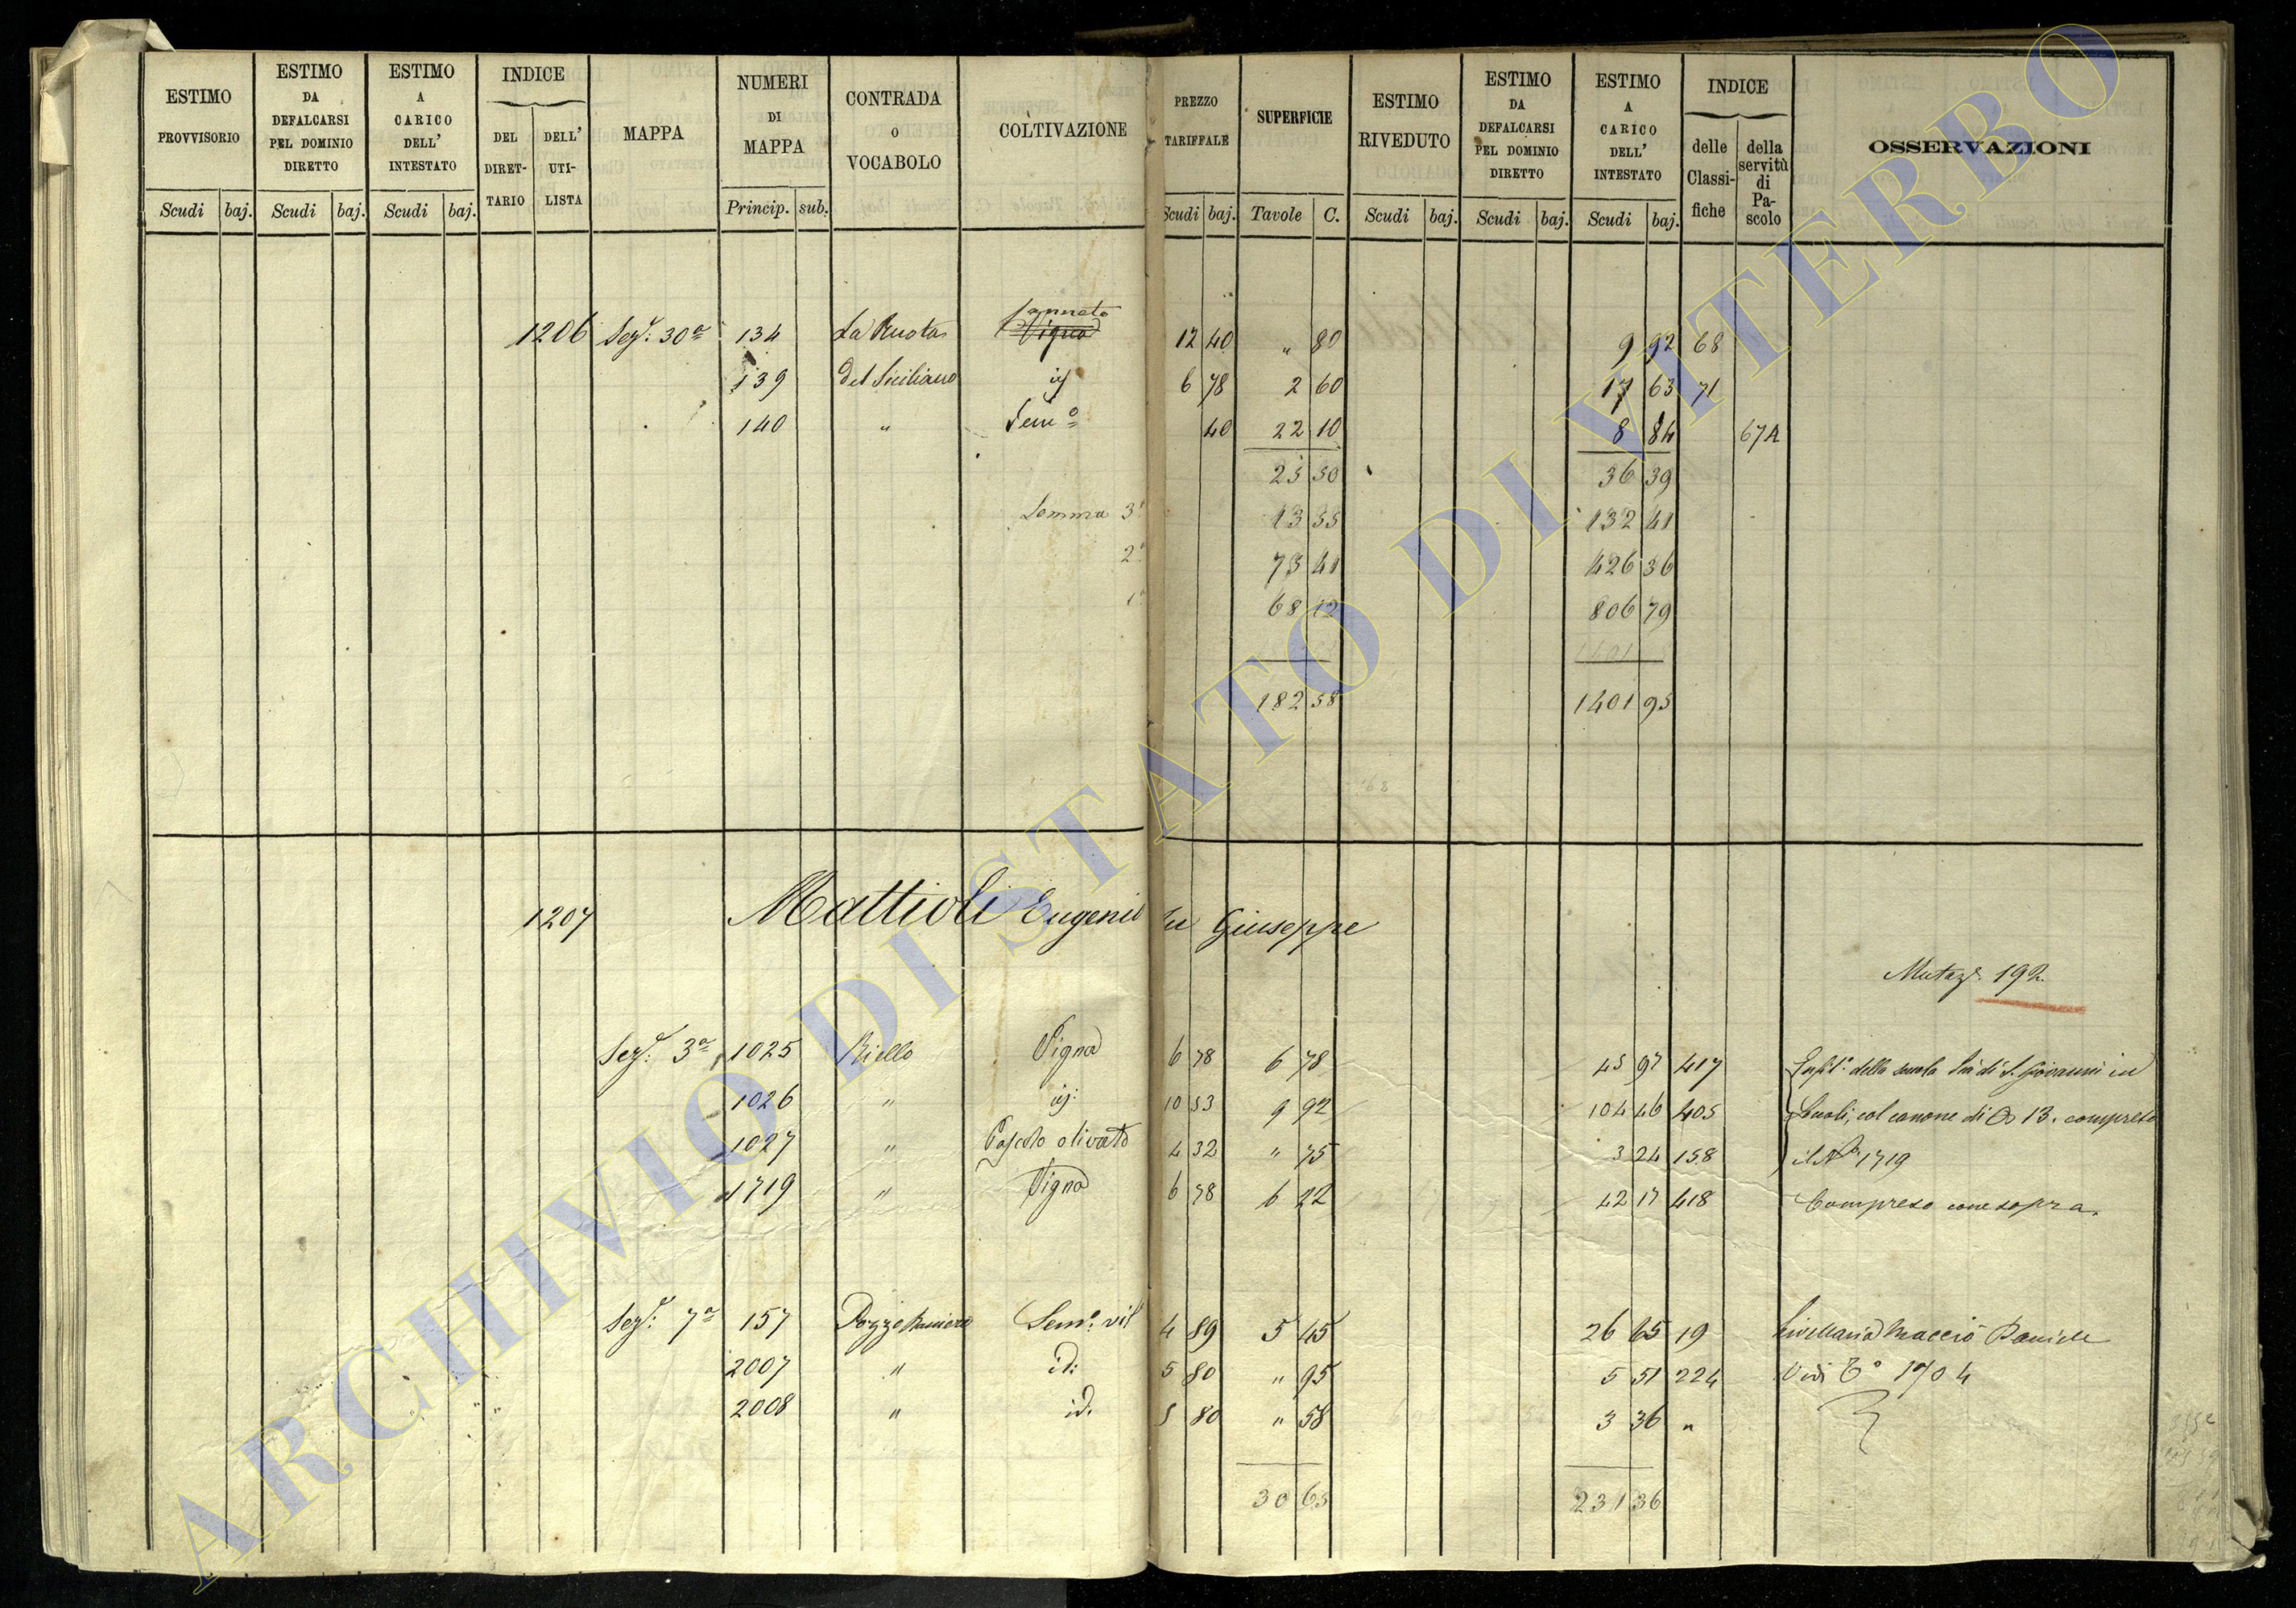 ESTIMO PROVVISORIO Scudi baj.
ESTIMO DA DEFALCARSI PEL DOMINIO DIRETTO Scudi baj.
ESTIMO A CARICO DELL' INTESTATO Scudi baj.
INDICE DEL DIRET-TARIO DELL' UTI-LISTA
MAPPA
NUMERI DI MAPPA Princip. sub.
CONTRADA O VOCABOLO
COLTIVAZIONE
PREZZO TARIFFALE Scudi baj.
SUPERFICIE Tavole C.
ESTIMO RIVEDUTO Scudi baj.
ESTIMO DA DEFALCARSI PEL DOMINIO DIRETTO Scudi baj.
ESTIMO A CARICO DELL' INTESTATO Scudi baj.
INDICE delle Classi-fiche della servitù di Pa-scolo
OSSERVAZIONI
1206 Sez.e 30a 134 La Ruota Vigna 12 40 " 80 9 92 68
139 del Siciliano id 6 78 2 60 17 63 71
140 " Sem.o 40 22 10 8 84 67A
25 50 36 39
Somma 3a 13 55 132 41
2a 75 41 426 36
1a 68 12 806 79
1401
182 58 1401 95
1207 Mattioli Eugenio fu Giuseppe
Mutaz.e 192
Sez.e 3a 1025 Riello Vigna 6 78 6 78 45 97 417
1026 " id: 10 53 9 92 104 46 405 col canone di 13. compreso
1027 " Pascolo olivato 4 32 " 75 3 24 158 il No 1719
1719 " Vigna 6 78 6 22 42 17 418 Compreso come sopra.
Sez.e 7a 157 Sem.o vit 4 89 5 45 26 65 19 Daniele
2007 " id: 5 80 " 95 5 51 224 Vedi 1704
2008 " id. 5 80 " 58 3 36 "
30 65 231 36
ARCHIVIO DI STATO DI VITERBO